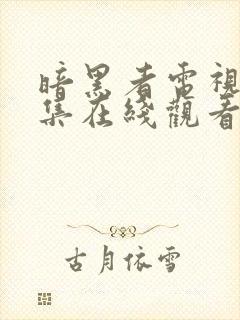 暗黑者電視
集在綫觀看
古月依雪